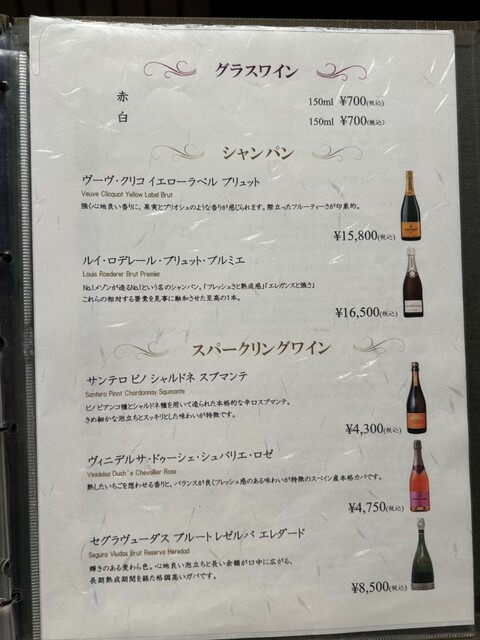 グラスワイン
赤 150ml ¥700(税込)
白 150ml ¥700(税込)
シャンパン
ヴーヴ・クリコ イエローラベル ブリュット
Veuve Clicquot Yellow Label Brut
強く心地良い香りに、果実とブリオシュのような香りが感じられます。際立ったフルーティーさが印象的。
¥15,800(税込)
ルイ・ロデレール・ブリュット・プルミエ
Louis Roederer Brut Premier
No.1メゾンが造るNo.1という名のシャンパン。「フレッシュさと熟成感」「エレガンスと強さ」
これらの相対する要素を見事に融和させた至高の1本。
¥16,500(税込)
スパークリングワイン
サンテロ ピノ シャルドネ スプマンテ
Santero Pinot Chardonnay Spumante
ピノ ビアンコ種とシャルドネ種を用いて造られた本格的な辛口スプマンテ。
きめ細かな泡立ちとスッキリとした味わいが特徴です。
¥4,300(税込)
ヴィニデルサ・ドゥーシェ・シュバリエ・ロゼ
Vinidelsa Duch's Chevallier Rose
熟したいちごを想わせる香りと、バランスが良くフレッシュ感のある味わいが特徴のスペイン産本格カバです。
¥4,750(税込)
セグラヴューダス ブルートレゼルバ エレダード
Segura Viudas Brut Reserva Heredad
輝きのある麦わら色。心地良い泡立ちと長い余韻が口中に広がる、
長期熟成期間を経た格調高いカバです。
¥8,500(税込)